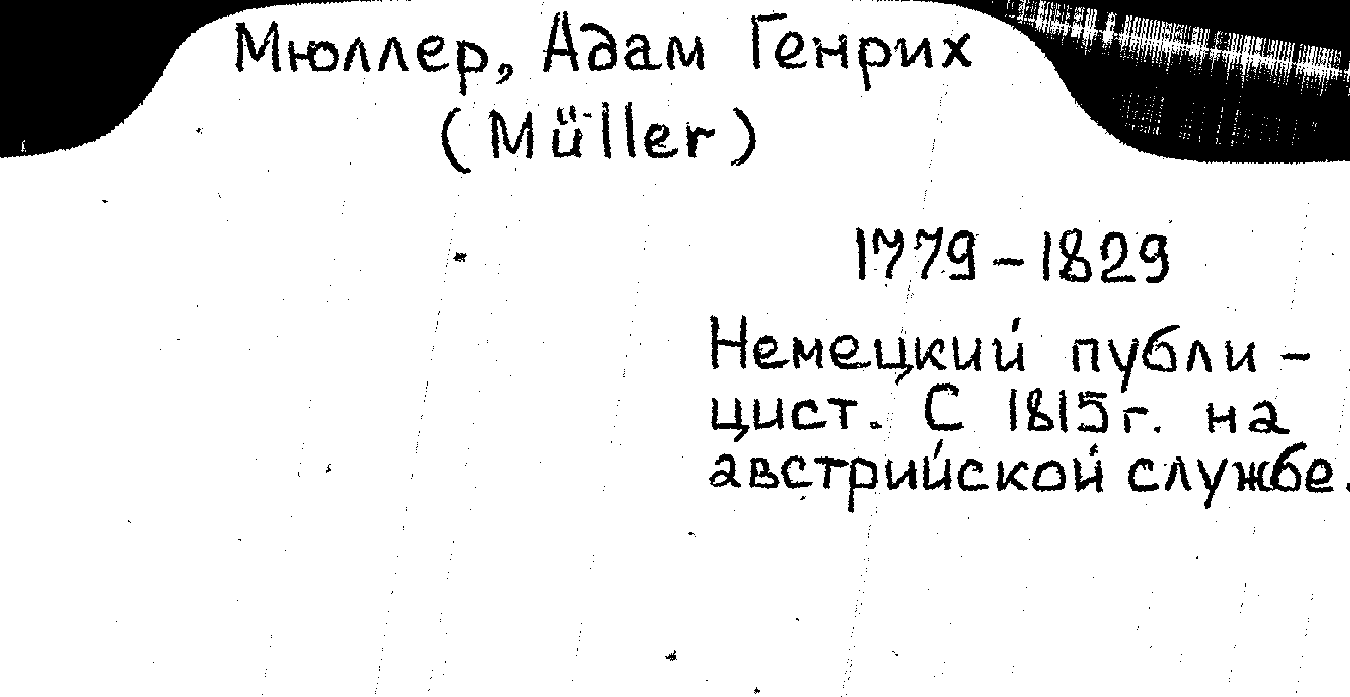 Мюллер, Адам Генрих
(Müller)
1779-1829
Немецкий публи-
цист. С 1815г. на
австрийской службе.